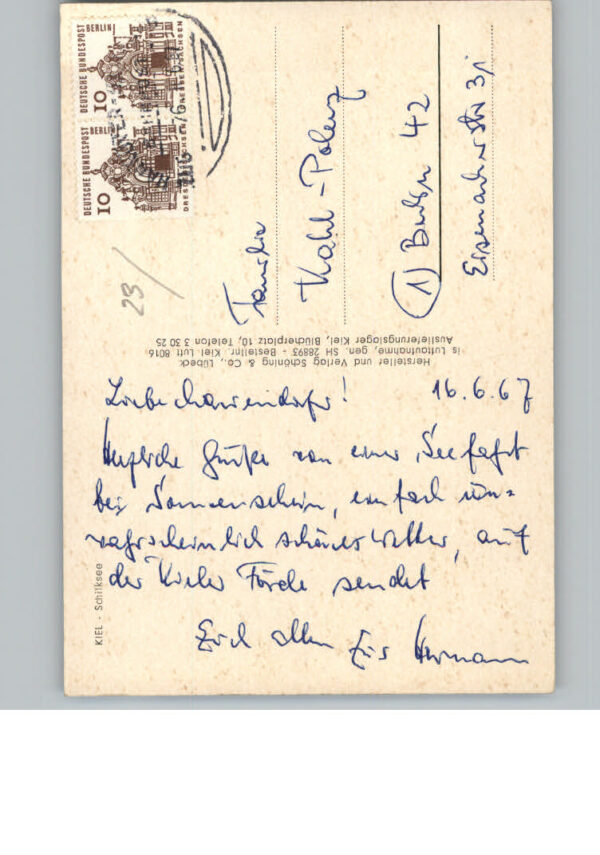 Liebe Marendorfer!
16.6.67
Herzliche Grüße von einer Seefahrt
bei Sonnenschein, einfach un=
wahrscheinlich schönes Wetter, auf
der Kieler Förde sendet
Euch allen Hermann
Familie
Kahl-Polenz
1) Berlin 42
Eisenacherstr 3
23/
DEUTSCHE BUNDESPOST
BERLIN
10
DRESDEN/SACHSEN
DEUTSCHE BUNDESPOST
BERLIN
10
DRESDEN/SACHSEN
Hersteller und Verlag Schöning & Co., Lübeck
Luftaufnahme, gen. SH 28893 - Bestellnr. Kiel Luft 8016
Auslieferungslager Kiel, Blücherplatz 10, Telefon 3 30 25
KIEL - Schilksee